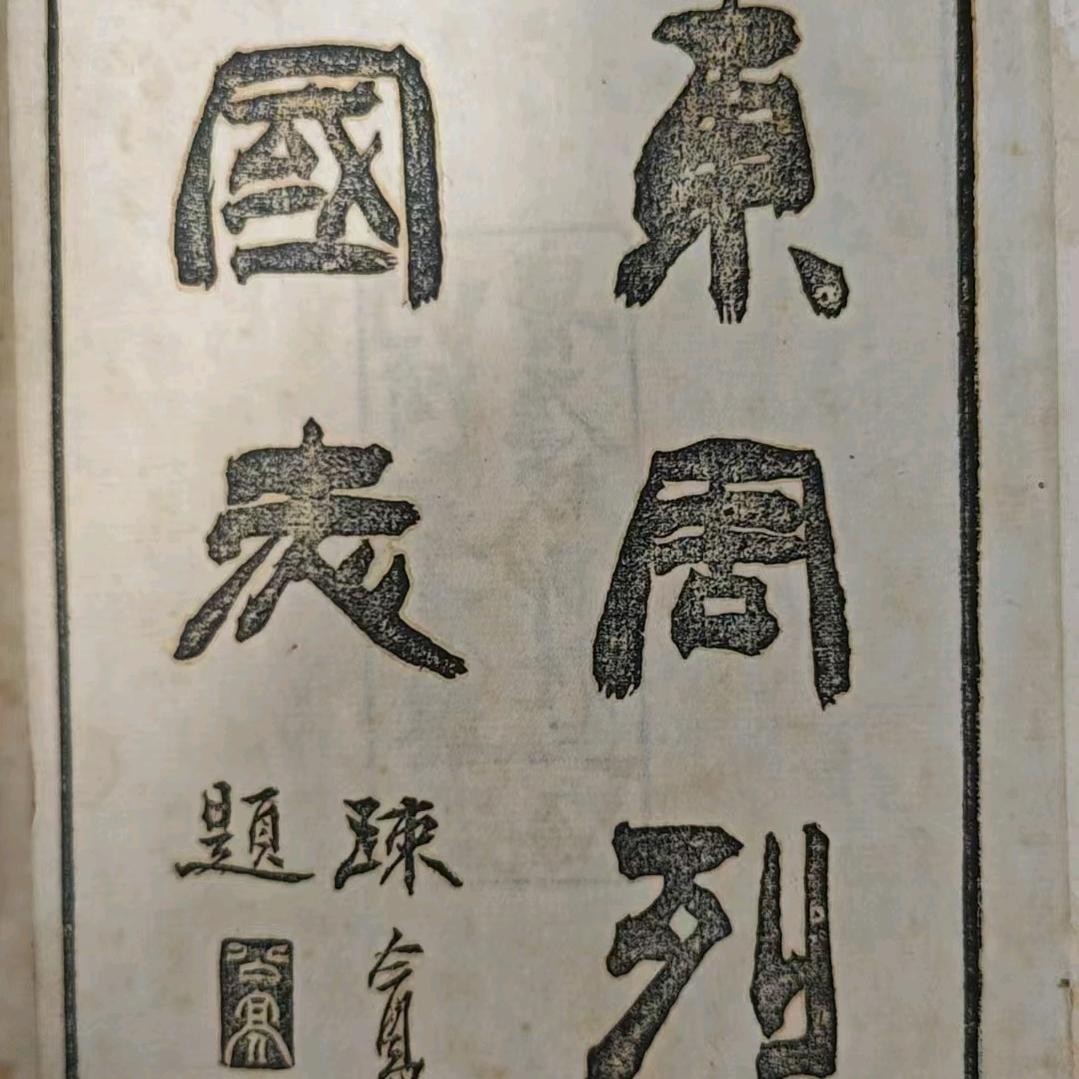 東周列
國表
踈今
題